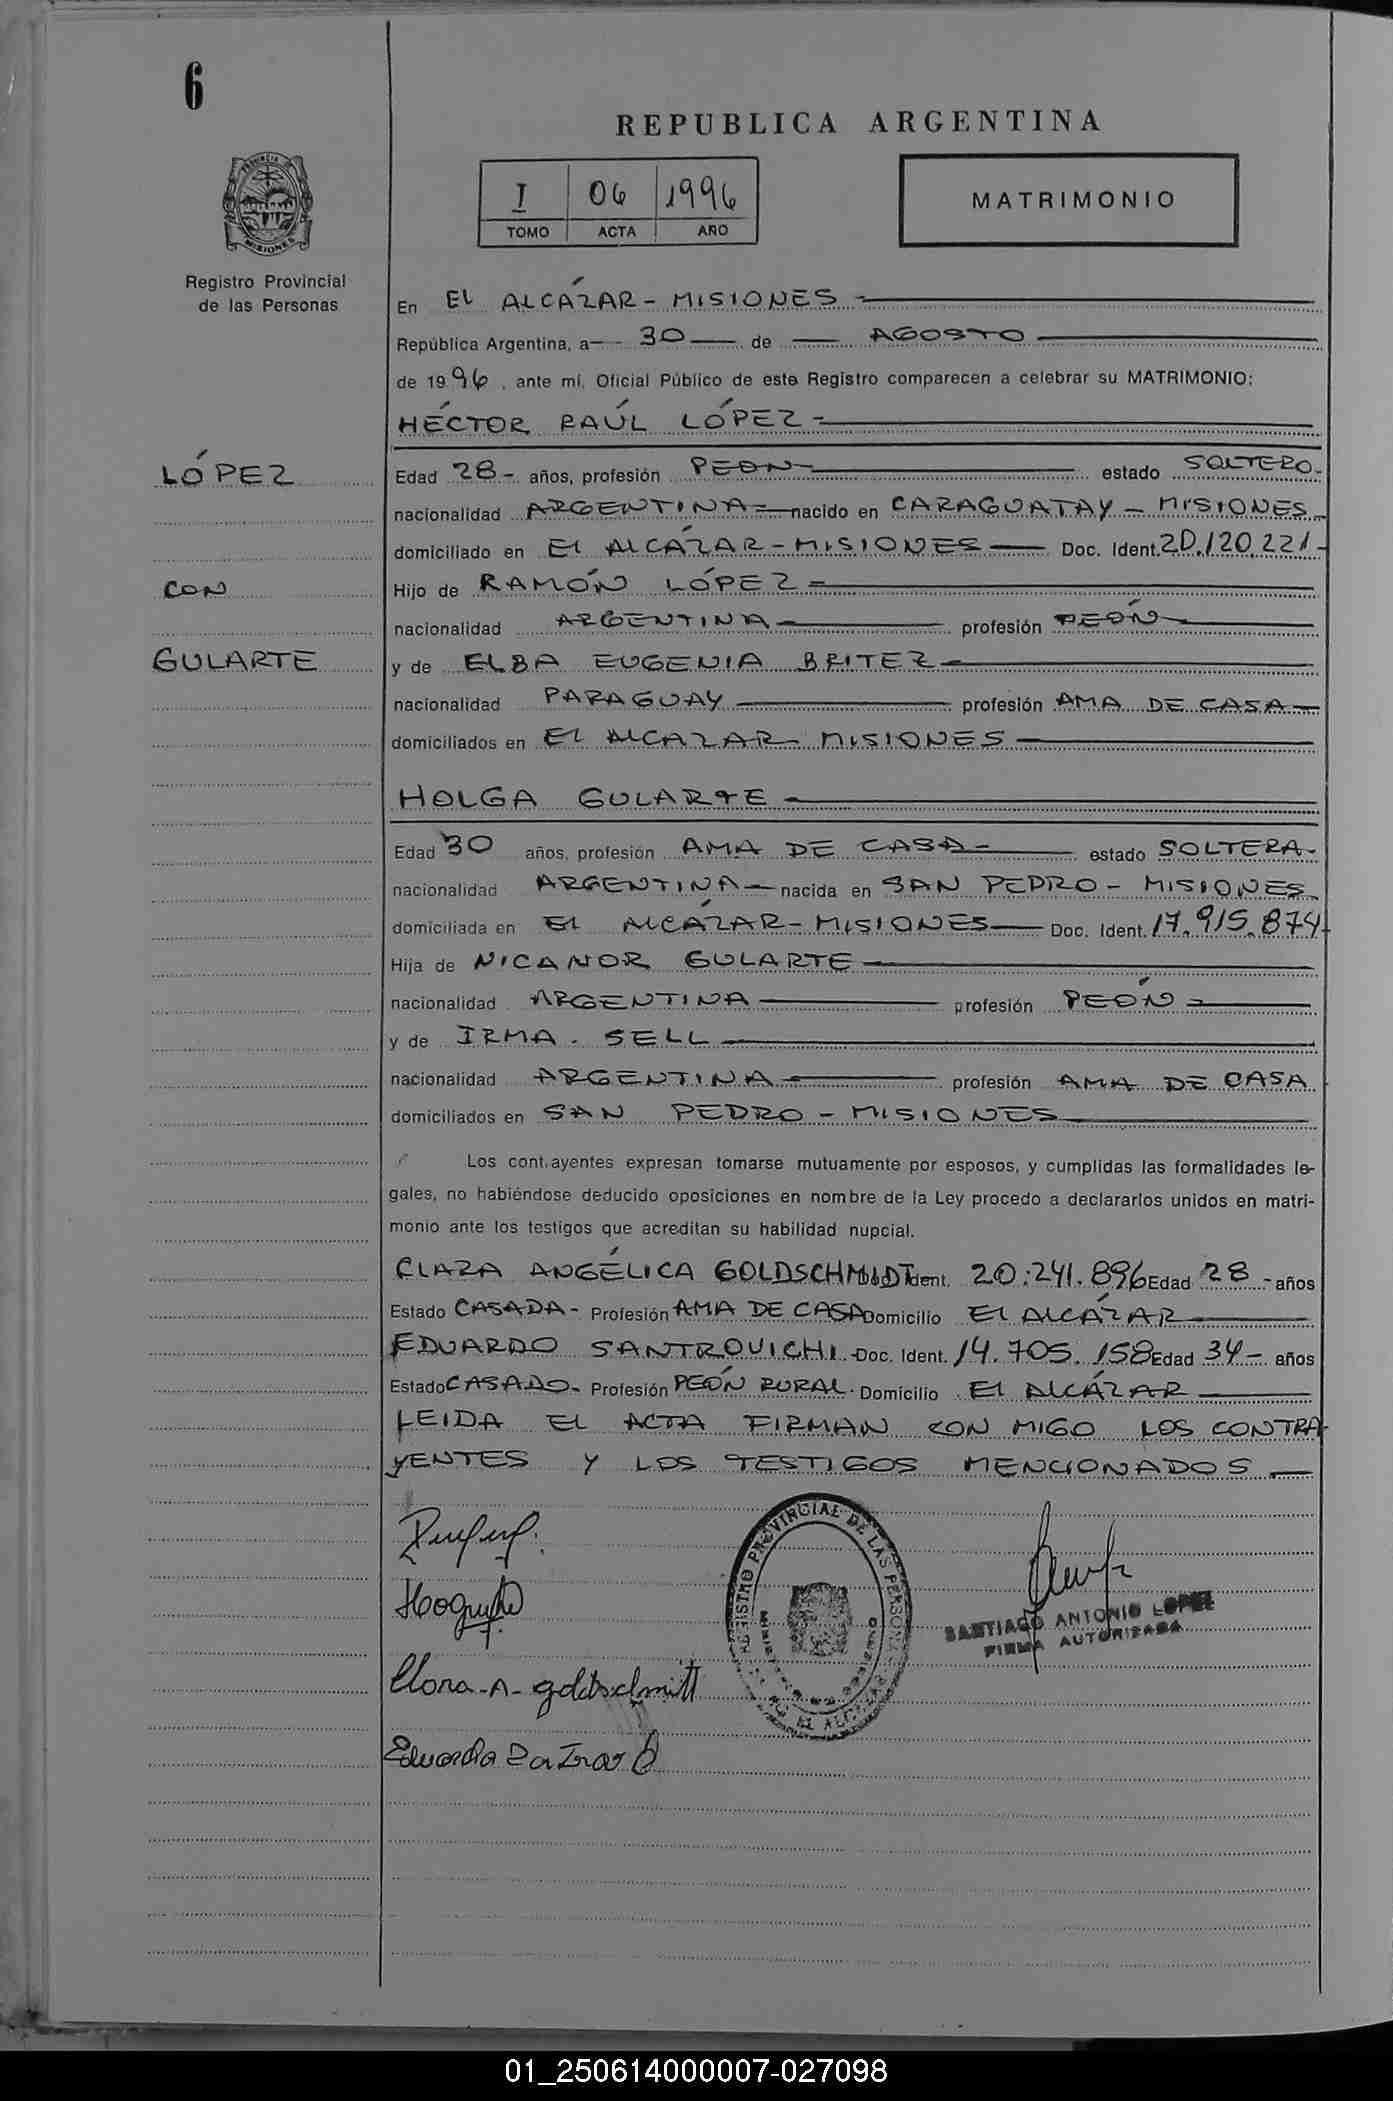 6
REPUBLICA ARGENTINA
I 06 1996
TOMO ACTA AÑO
MATRIMONIO
PROVINCIA DE
MISIONES
Registro Provincial
de las Personas
En EL ALCÁZAR - MISIONES -
República Argentina, a - 30 - de - AGOSTO
de 1996, ante mí, Oficial Público de este Registro comparecen a celebrar su MATRIMONIO:
HÉCTOR RAÚL LÓPEZ -
LÓPEZ
CON
GULARTE
Edad 28 - años, profesión PEON - estado SOLTERO -
nacionalidad ARGENTINA - nacido en CARAGUATAY - MISIONES -
domiciliado en El ALCÁZAR - MISIONES - Doc. Ident. 20.120.221 -
Hijo de RAMÓN LÓPEZ -
nacionalidad ARGENTINA - profesión PEÓN -
y de ELBA EUGENIA BRITEZ -
nacionalidad PARAGUAY - profesión AMA DE CASA -
domiciliados en El ALCAZAR - MISIONES -
HOLGA GULARTE -
Edad 30 años, profesión AMA DE CASA - estado SOLTERA -
nacionalidad ARGENTINA - nacida en SAN PEDRO - MISIONES -
domiciliada en El ALCÁZAR - MISIONES - Doc. Ident. 17.915.874 -
Hija de NICANOR GULARTE -
nacionalidad ARGENTINA - profesión PEÓN -
y de IRMA . SELL -
nacionalidad ARGENTINA - profesión AMA DE CASA
domiciliados en SAN PEDRO - MISIONES -
Los cont.ayentes expresan tomarse mutuamente por esposos, y cumplidas las formalidades le-
gales, no habiéndose deducido oposiciones en nombre de la Ley procedo a declararlos unidos en matri-
monio ante los testigos que acreditan su habilidad nupcial.
CLARA ANGÉLICA GOLDSCHMIDT Ident. 20.241.896 Edad 28 - años
Estado CASADA - Profesión AMA DE CASA Domicilio El ALCÁZAR -
EDUARDO SANTROVICHI - Doc. Ident. 14.705.158 Edad 34 - años
Estado CASADO - Profesión PEÓN RURAL . Domicilio El ALCÁZAR -
LEIDA EL ACTA FIRMAN CON MIGO LOS CONTRA
YENTES Y LOS TESTIGOS MENCIONADOS -
REGISTRO PROVINCIAL DE LAS PERSONAS
EL ALCAZAR
SANTIAGO ANTONIO LOPEZ
FIRMA AUTORIZADA
Clara - A - goldschmitt
01_250614000007-027098